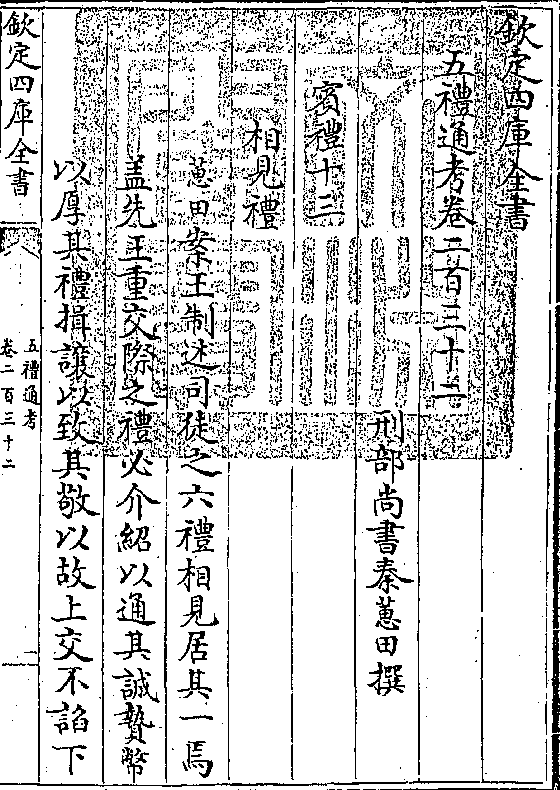 欽定四庫全書
五禮通考卷二百三十二
刑部尚書秦蕙田撰
賓禮十三
相見禮
蕙田案王制述司徒之六禮相見居其一焉
盖先王重交際之禮必介紹以通其誠贄幣
以厚其禮揖讓以致其敬以故上交不諂下
欽定四庫全書
五禮通考
卷二百三十二
一